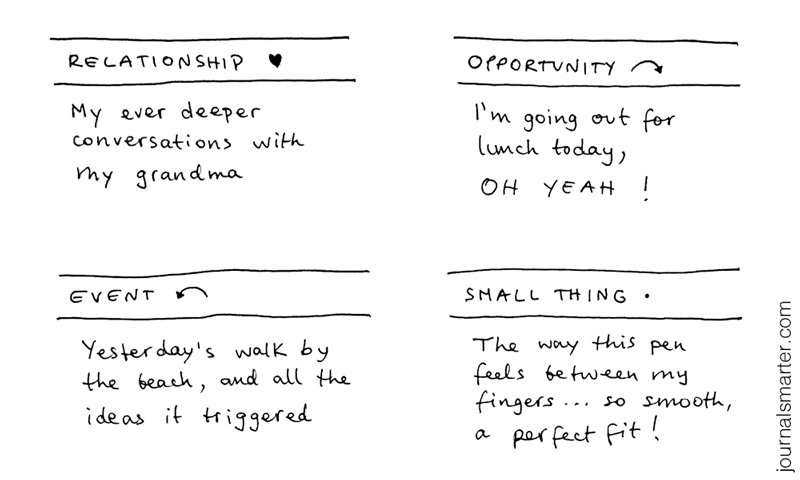 RELATIONSHIP ♥
My ever deeper
conversations with
my grandma
OPPORTUNITY
I'm going out for
lunch today,
OH YEAH !
EVENT
Yesterday's walk by
the beach, and all the
ideas it triggered
SMALL THING •
The way this pen
feels between my
fingers... so smooth,
a perfect fit!
journalsmarter.com